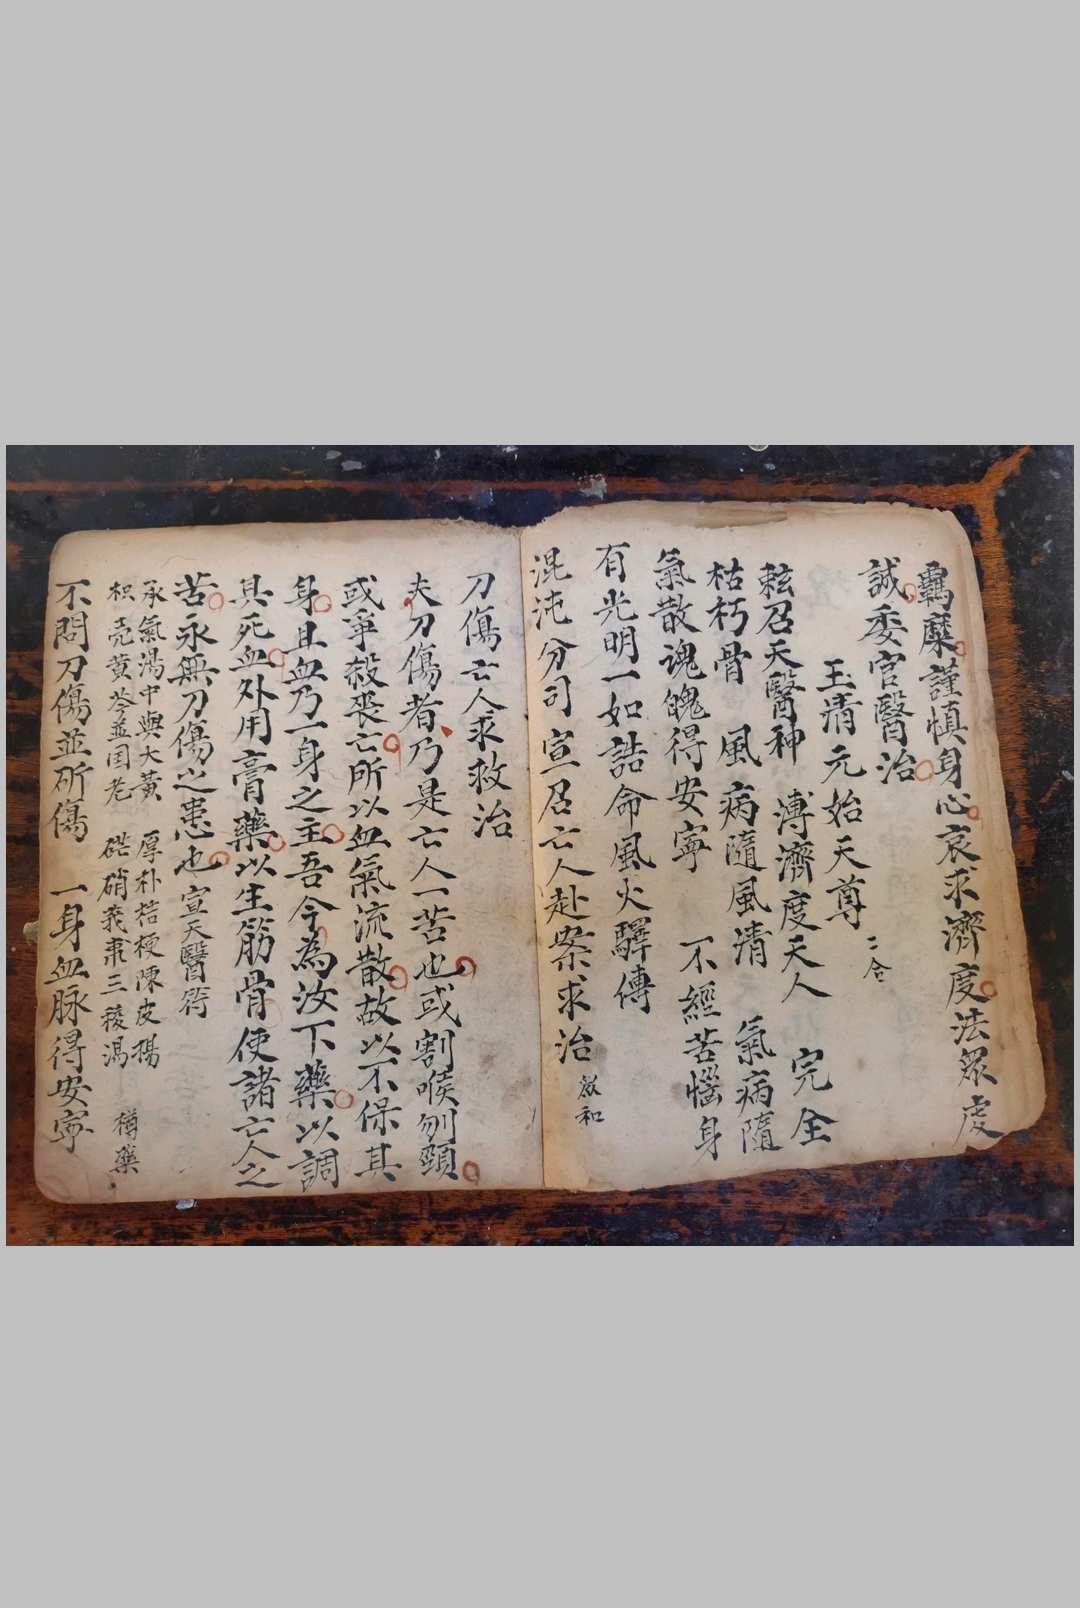 羈縻謹慎身心哀求濟度法眾虔
誠委官醫治
玉清元始天尊 二合
敕召天醫神 溥濟度天人 完全
枯朽骨 風病隨風清 氣病隨
氣散魂魄得安寧 不經苦惱身
有光明一如誥命風火驛傳
混沌分司 宣召亡人赴案求治
刀傷亡人求救治
夫刀傷者乃是亡人一苦也或割喉刎頸
或爭殺喪亡所以血氣流散故以不保其
身且血乃一身之主吾今為汝下藥以調
其死血外用膏藥以生筋骨使諸亡人之
苦永無刀傷之患也 宣天醫符
承氣湯中與大黃 厚朴桔梗陳皮揚
枳壳黃芩並国老 硭硝莪朮三稜湯 樽藥
不問刀傷並斫傷 一身血脉得安寧